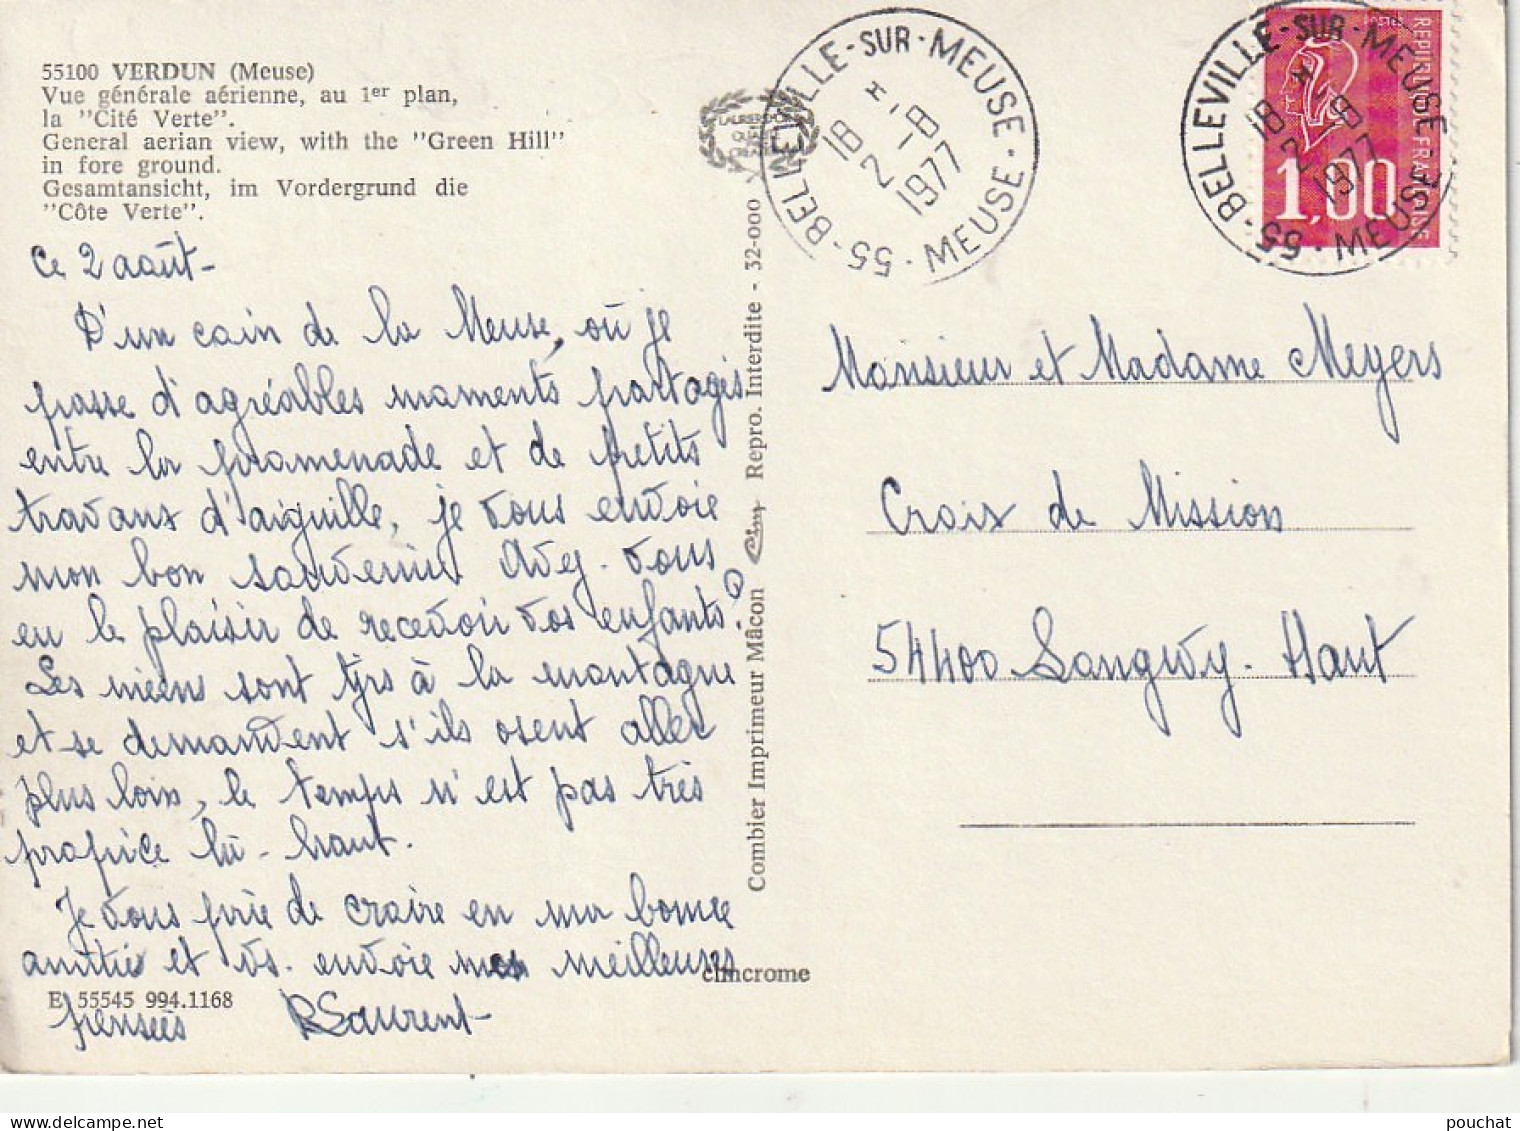 55100 VERDUN (Meuse)
Vue générale aérienne, au 1er plan,
la "Cité Verte".
General aerian view, with the "Green Hill"
in fore ground.
Gesamtansicht, im Vordergrund die
"Côte Verte".
Ce 2 août -
D'un coin de la Meuse, où je
passe d'agréables moments partagés
entre la promenade et de petits
travaux d'aiguille, je vous envoie
mon bon souvenir. Avez-vous
eu le plaisir de recevoir vos enfants?
Les miens sont tjrs à la montagne
et se demandent s'ils osent aller
plus loin, le temps n'est pas très
propice là-haut.
Je vous prie de croire en ma bonne
amitié et vs. envoie mes meilleures
pensées RLaurent
E 55545 994.1168
Combier Imprimeur Mâcon Cim Repro. Interdite - 32-000
cimcrome
55 - BELLEVILLE - SUR - MEUSE - MEUSE
18 H
2 - 8
1977
55 - BELLEVILLE - SUR - MEUSE - MEUSE
18 H
2 - 8
1977
POSTES
REPUBLIQUE FRANCAISE
1,00
Monsieur et Madame Meyers
Croix de Mission
54400 Longwy-Haut
pouchat